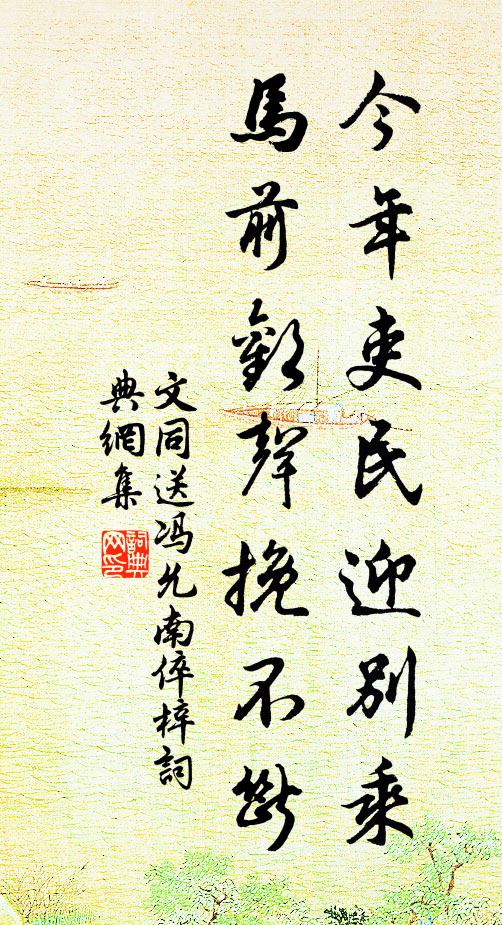 今年吏民迎別乘
馬前歡聲挽不斷
文同送冯允南倅梓詞
典網集
詞典
网印